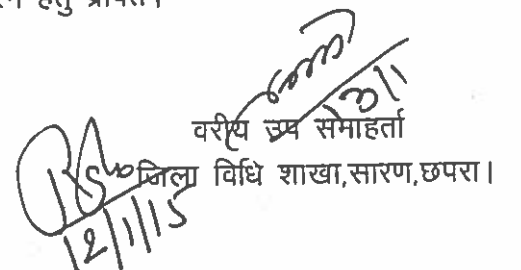 हेतु प्राप्त।
13/1
वरीय उप समाहर्ता
जिला विधि शाखा,सारण,छपरा।
12/1/15